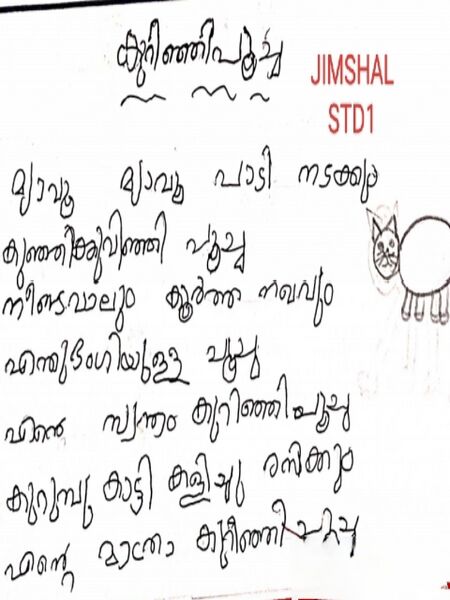 കുറിഞ്ഞിപൂച്ച
JIMSHAL
STD1
മ്യാവൂ മ്യാവൂ പാടി നടക്കും
കുഞ്ഞിക്കുറിഞ്ഞി പൂച്ച
നീണ്ടവാലും കൂർത്ത നഖവും
എന്തുഭംഗിയുള്ള പൂച്ച
എന്റെ സ്വന്തം കുറിഞ്ഞി പൂച്ച
കുറുമ്പു കാട്ടി കളിച്ചു രസിക്കും
എന്റെ മാത്രം കുറിഞ്ഞി പൂച്ച